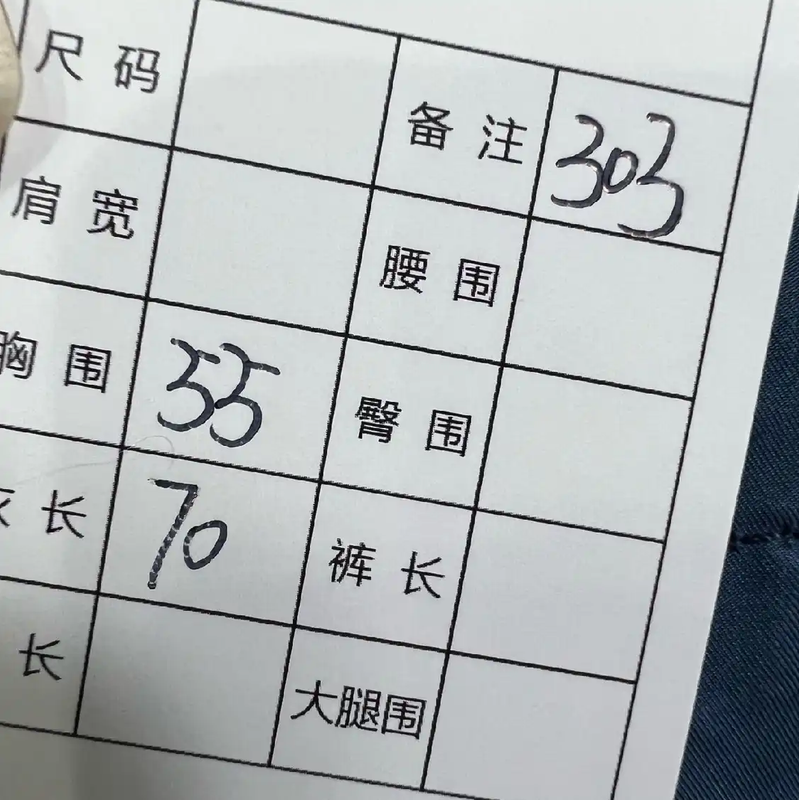 尺码 备注 303
肩宽 腰围
胸围 55 臀围
衣长 70 裤长
长 大腿围